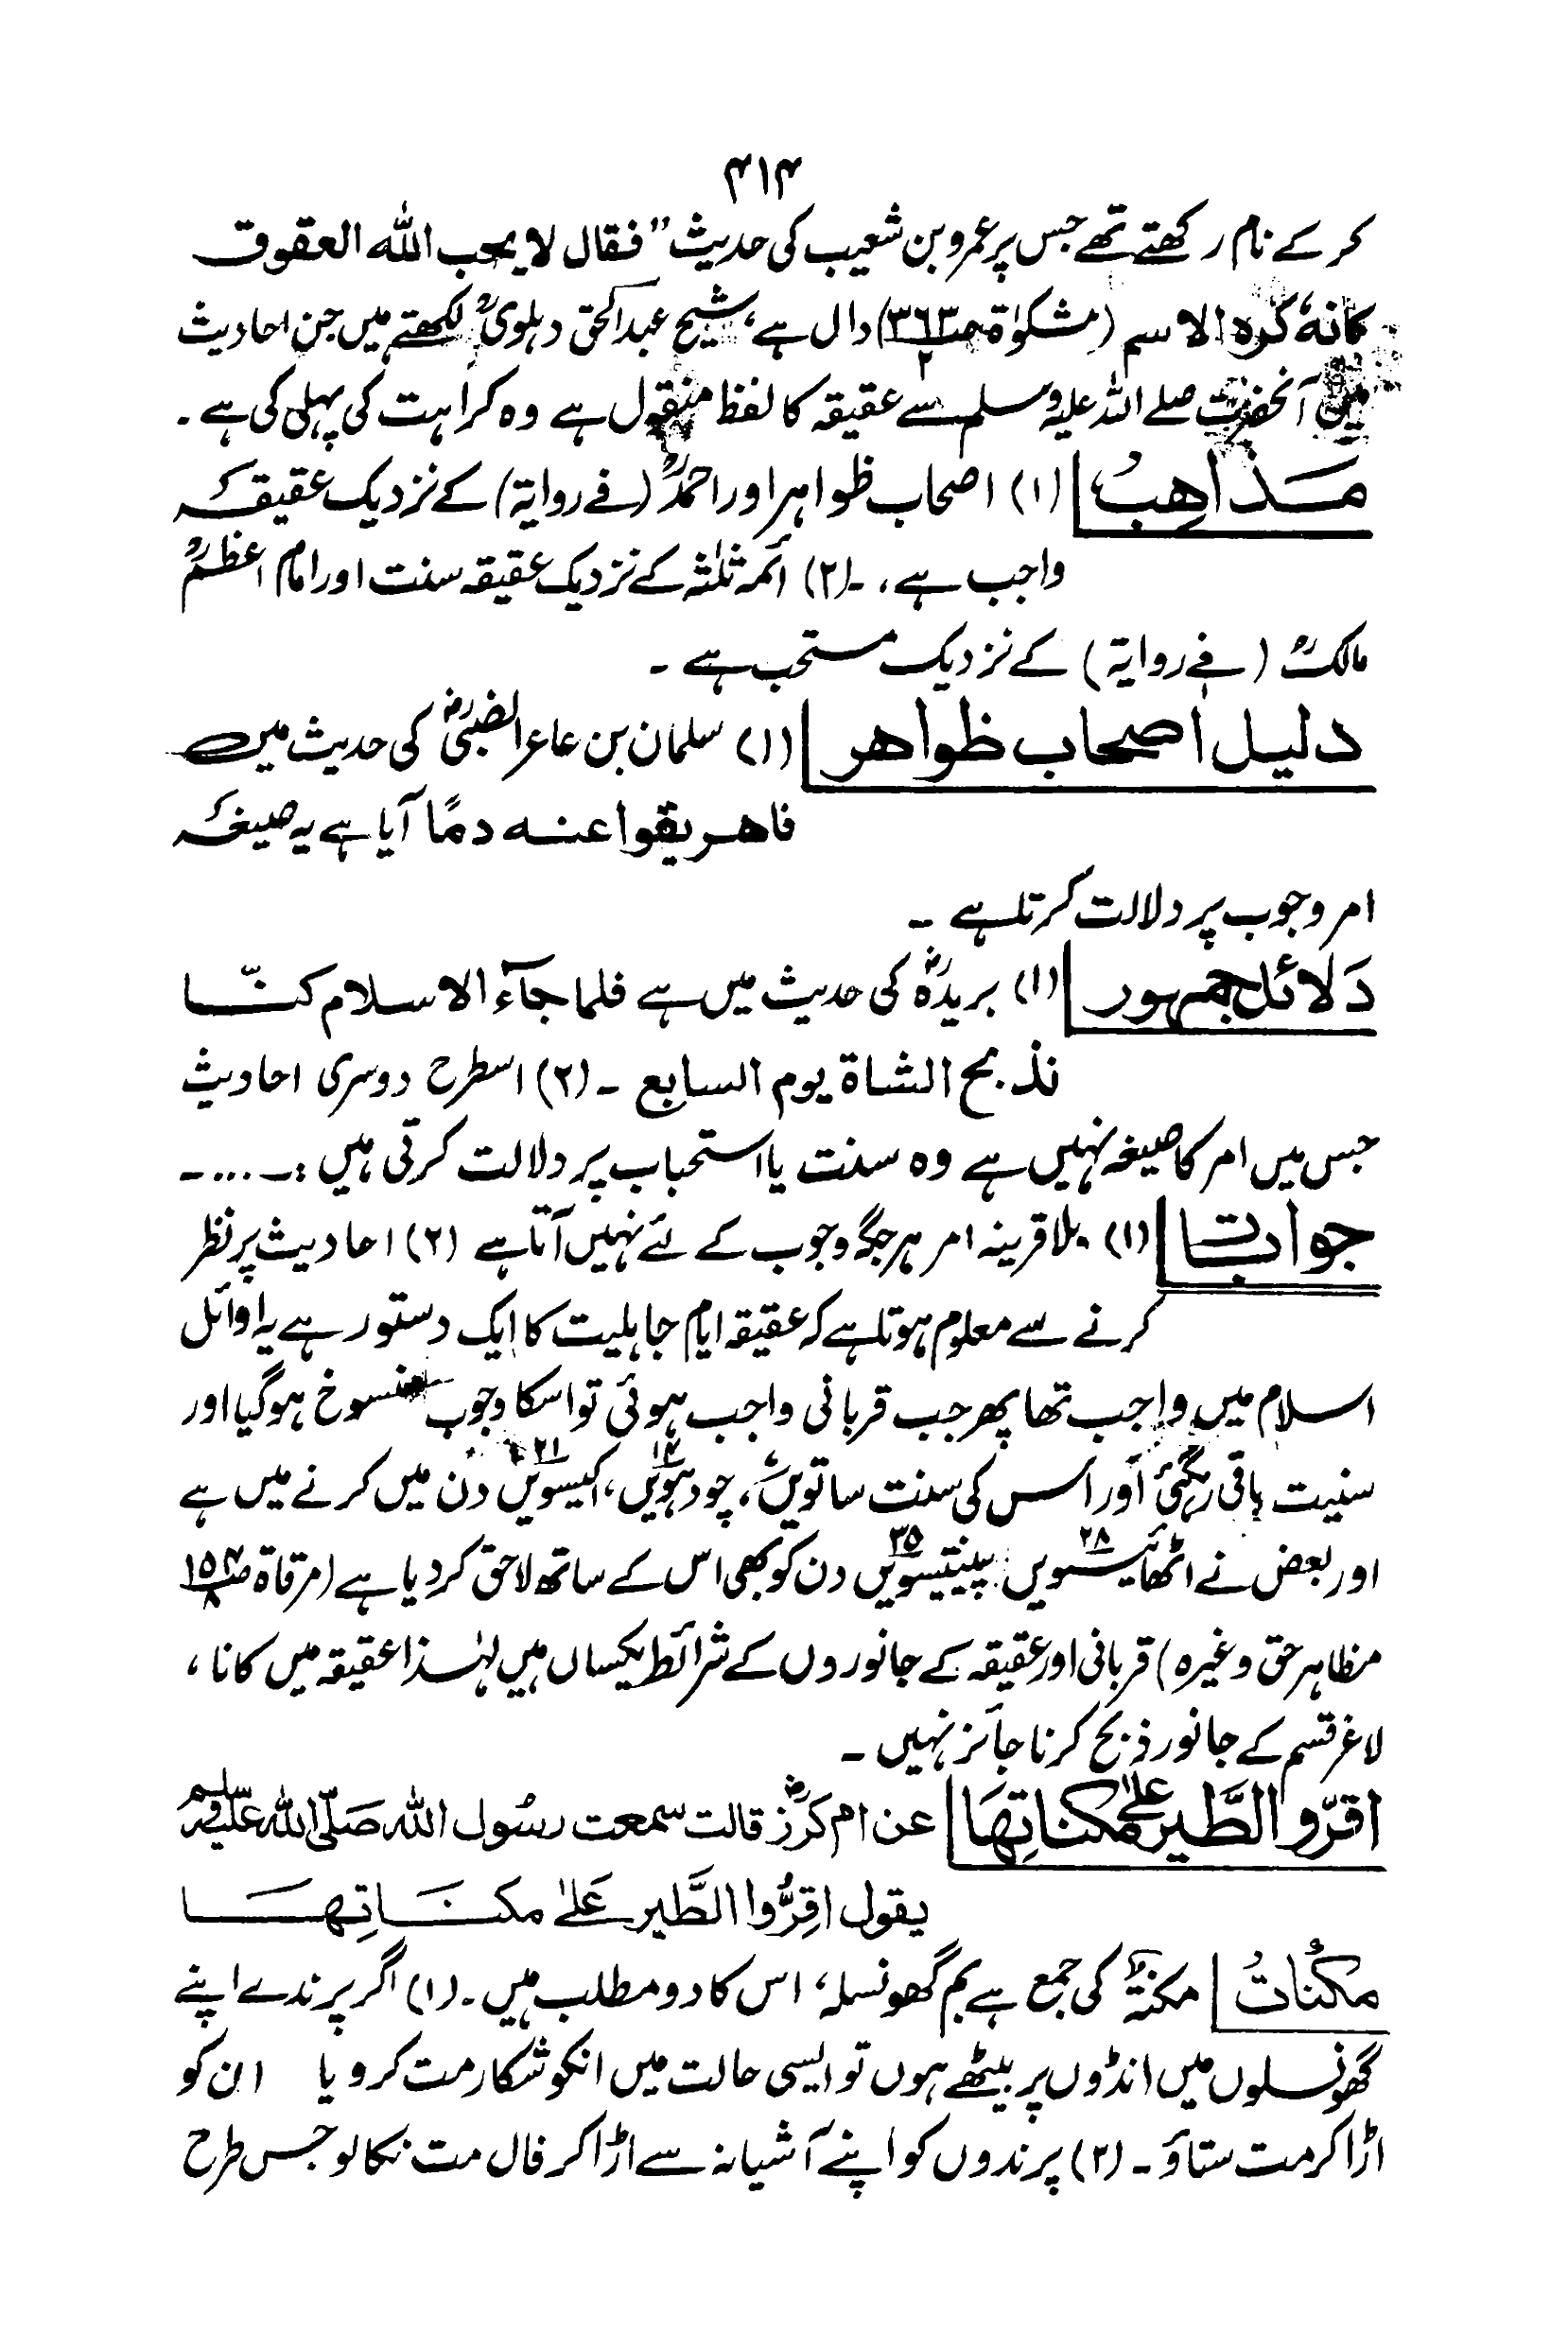 ۴۱۴
کر کے نام رکھتے تھے جس پر عمرو بن شعیب کی حدیث "فقال لا یحب اللہ العقوق
کانہٗ کرہ الاسم (مشکوٰۃ صـ ۳۶۳/۲) دال ہے، شیخ عبدالحق دہلویؒ لکھتے ہیں جن احادیث
میں آنحضرت صلے اللہ علیہ وسلم سے عقیقہ کا لفظ منقول ہے وہ کراہت کی پہلی کی ہے ۔
مَذَاهِبُ (۱) اصحاب ظواہر اور احمدؒ (فے روایۃ) کے نزدیک عقیقہ
واجب ہے، ۔ (۲) ائمہ ثلٰثہ کے نزدیک عقیقہ سنت اور امام اعظمؒ
مالکؒ (فے روایۃ) کے نزدیک مستحب ہے ۔
دلیل اصحاب ظواھر (۱) سلمان بن عامر الضبیؓ کی حدیث میں
فاھریقوا عنہ دمًا آیا ہے یہ صیغہ
امر وجوب پر دلالت کرتا ہے ۔
دَلائل جمہور (۱) بریدہؓ کی حدیث میں ہے فلما جآء الاسلام کنّا
نذبح الشاة یوم السابع ۔ (۲) اسطرح دوسری احادیث
جس میں امر کا صیغہ نہیں ہے وہ سنت یا استحباب پر دلالت کرتی ہیں ۔....۔
جوابات (۱) بلا قرینہ امر ہر جگہ وجوب کے لئے نہیں آتا ہے (۲) احادیث پر نظر
کرنے سے معلوم ہوتا ہے کہ عقیقہ ایام جاہلیت کا ایک دستور ہے یہ اوائل
اسلام میں واجب تھا پھر جب قربانی واجب ہوئی تو اسکا وجوب منسوخ ہوگیا اور
سنیت باقی رہگئی اور اس کی سنت ساتویں ۷، چودہویں ۱۴، اکیسویں ۲۱ دن میں کرنے میں ہے
اور بعض نے اٹھائیسویں ۲۸ پینتیسویں ۳۵ دن کو بھی اس کے ساتھ لاحق کردیا ہے (مرقاۃ صـ ۱۵۴/۸
مظاہر حق وغیرہ) قربانی اور عقیقہ کے جانوروں کے شرائط یکساں ہیں لہٰذا عقیقہ میں کانا،
لاغر قسم کے جانور ذبح کرنا جائز نہیں ۔
اقرّوا الطَّیر علےٰ مکناتِھَا عن ام کرزؓ قالت سمعت رسُول اللہ صَلّی اللہ علیہ وسلم
یقول اقِرُّوا الطَّیر عَلےٰ مکنَاتِھَا
مکُناتُ مکنۃؒ کی جمع ہے بم گھونسلہ، اس کا دو مطلب ہیں۔ (۱) اگر پرندے اپنے
گھونسلوں میں انڈوں پر بیٹھے ہوں تو ایسی حالت میں انکو شکار مت کرو یا ان کو
اڑا کر مت ستاؤ ۔ (۲) پرندوں کو اپنے آشیانہ سے اڑا کر فال مت نکالو جس طرح